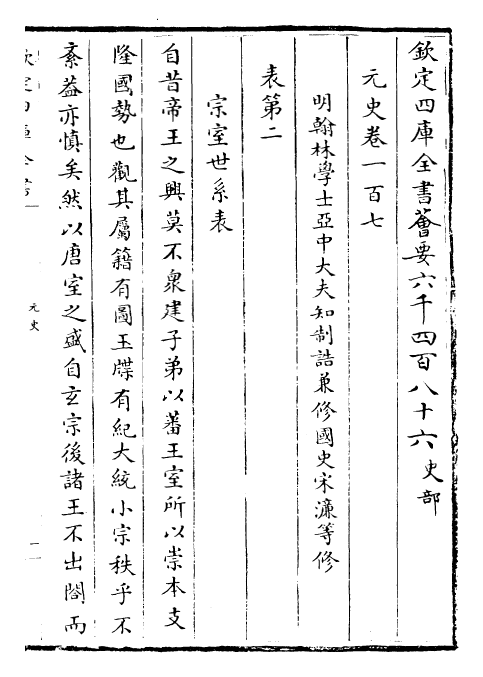 欽定四庫全書薈要六千四百八十六 史部
元史卷一百七
明翰林學士亞中大夫知制誥兼修國史宋濂等修
表第二
宗室世系表
自昔帝王之興莫不衆建子弟以蕃王室所以崇本支
隆國勢也觀其屬籍有圖玉牒有紀大統小宗秩乎不
紊葢亦慎矣然以唐室之盛自玄宗後諸王不出閤而
元史
一